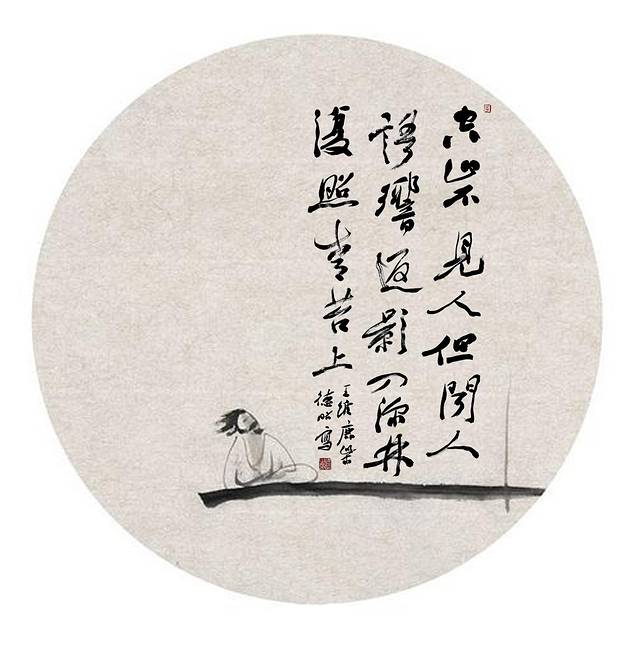 空山不見人但聞人
語響返影入深林
復照青苔上
王維鹿柴
德 寫